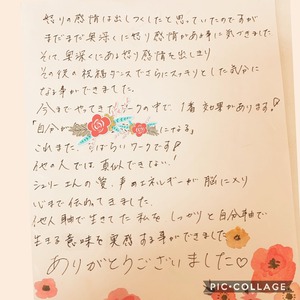 怒りの感情は出しつくしたと思っていたのですが
まだまだ奥深くに怒り感情がある事に気づきました
そして、奥深くにある怒り感情を出しきり
その後の祝福ダンスでさらにスッキリとした気分に
なる事ができました。
今までやってきたワークの中で、1番効果があります!
「自分が になる」
これまた、すばらしいワークです!
他の人では真似できない!
シェリーさんの愛、声のエネルギーが脳に入り
心まで伝わってきました。
他人軸で生きてた私をしっかりと自分軸で
生きる意味を実感する事ができました
ありがとうございました♡
PIC・COLLAGE